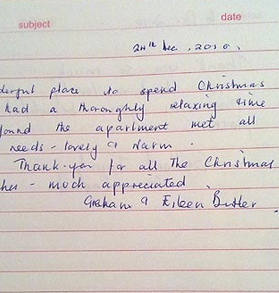 subject date
24th Dec. 2010.
derful place to spend Christmas
had a thoroughly relaxing time
found the apartment met all
needs - lovely & warm.
Thank-you for all the Christmas
- much appreciated.
Graham & Eileen Butler.